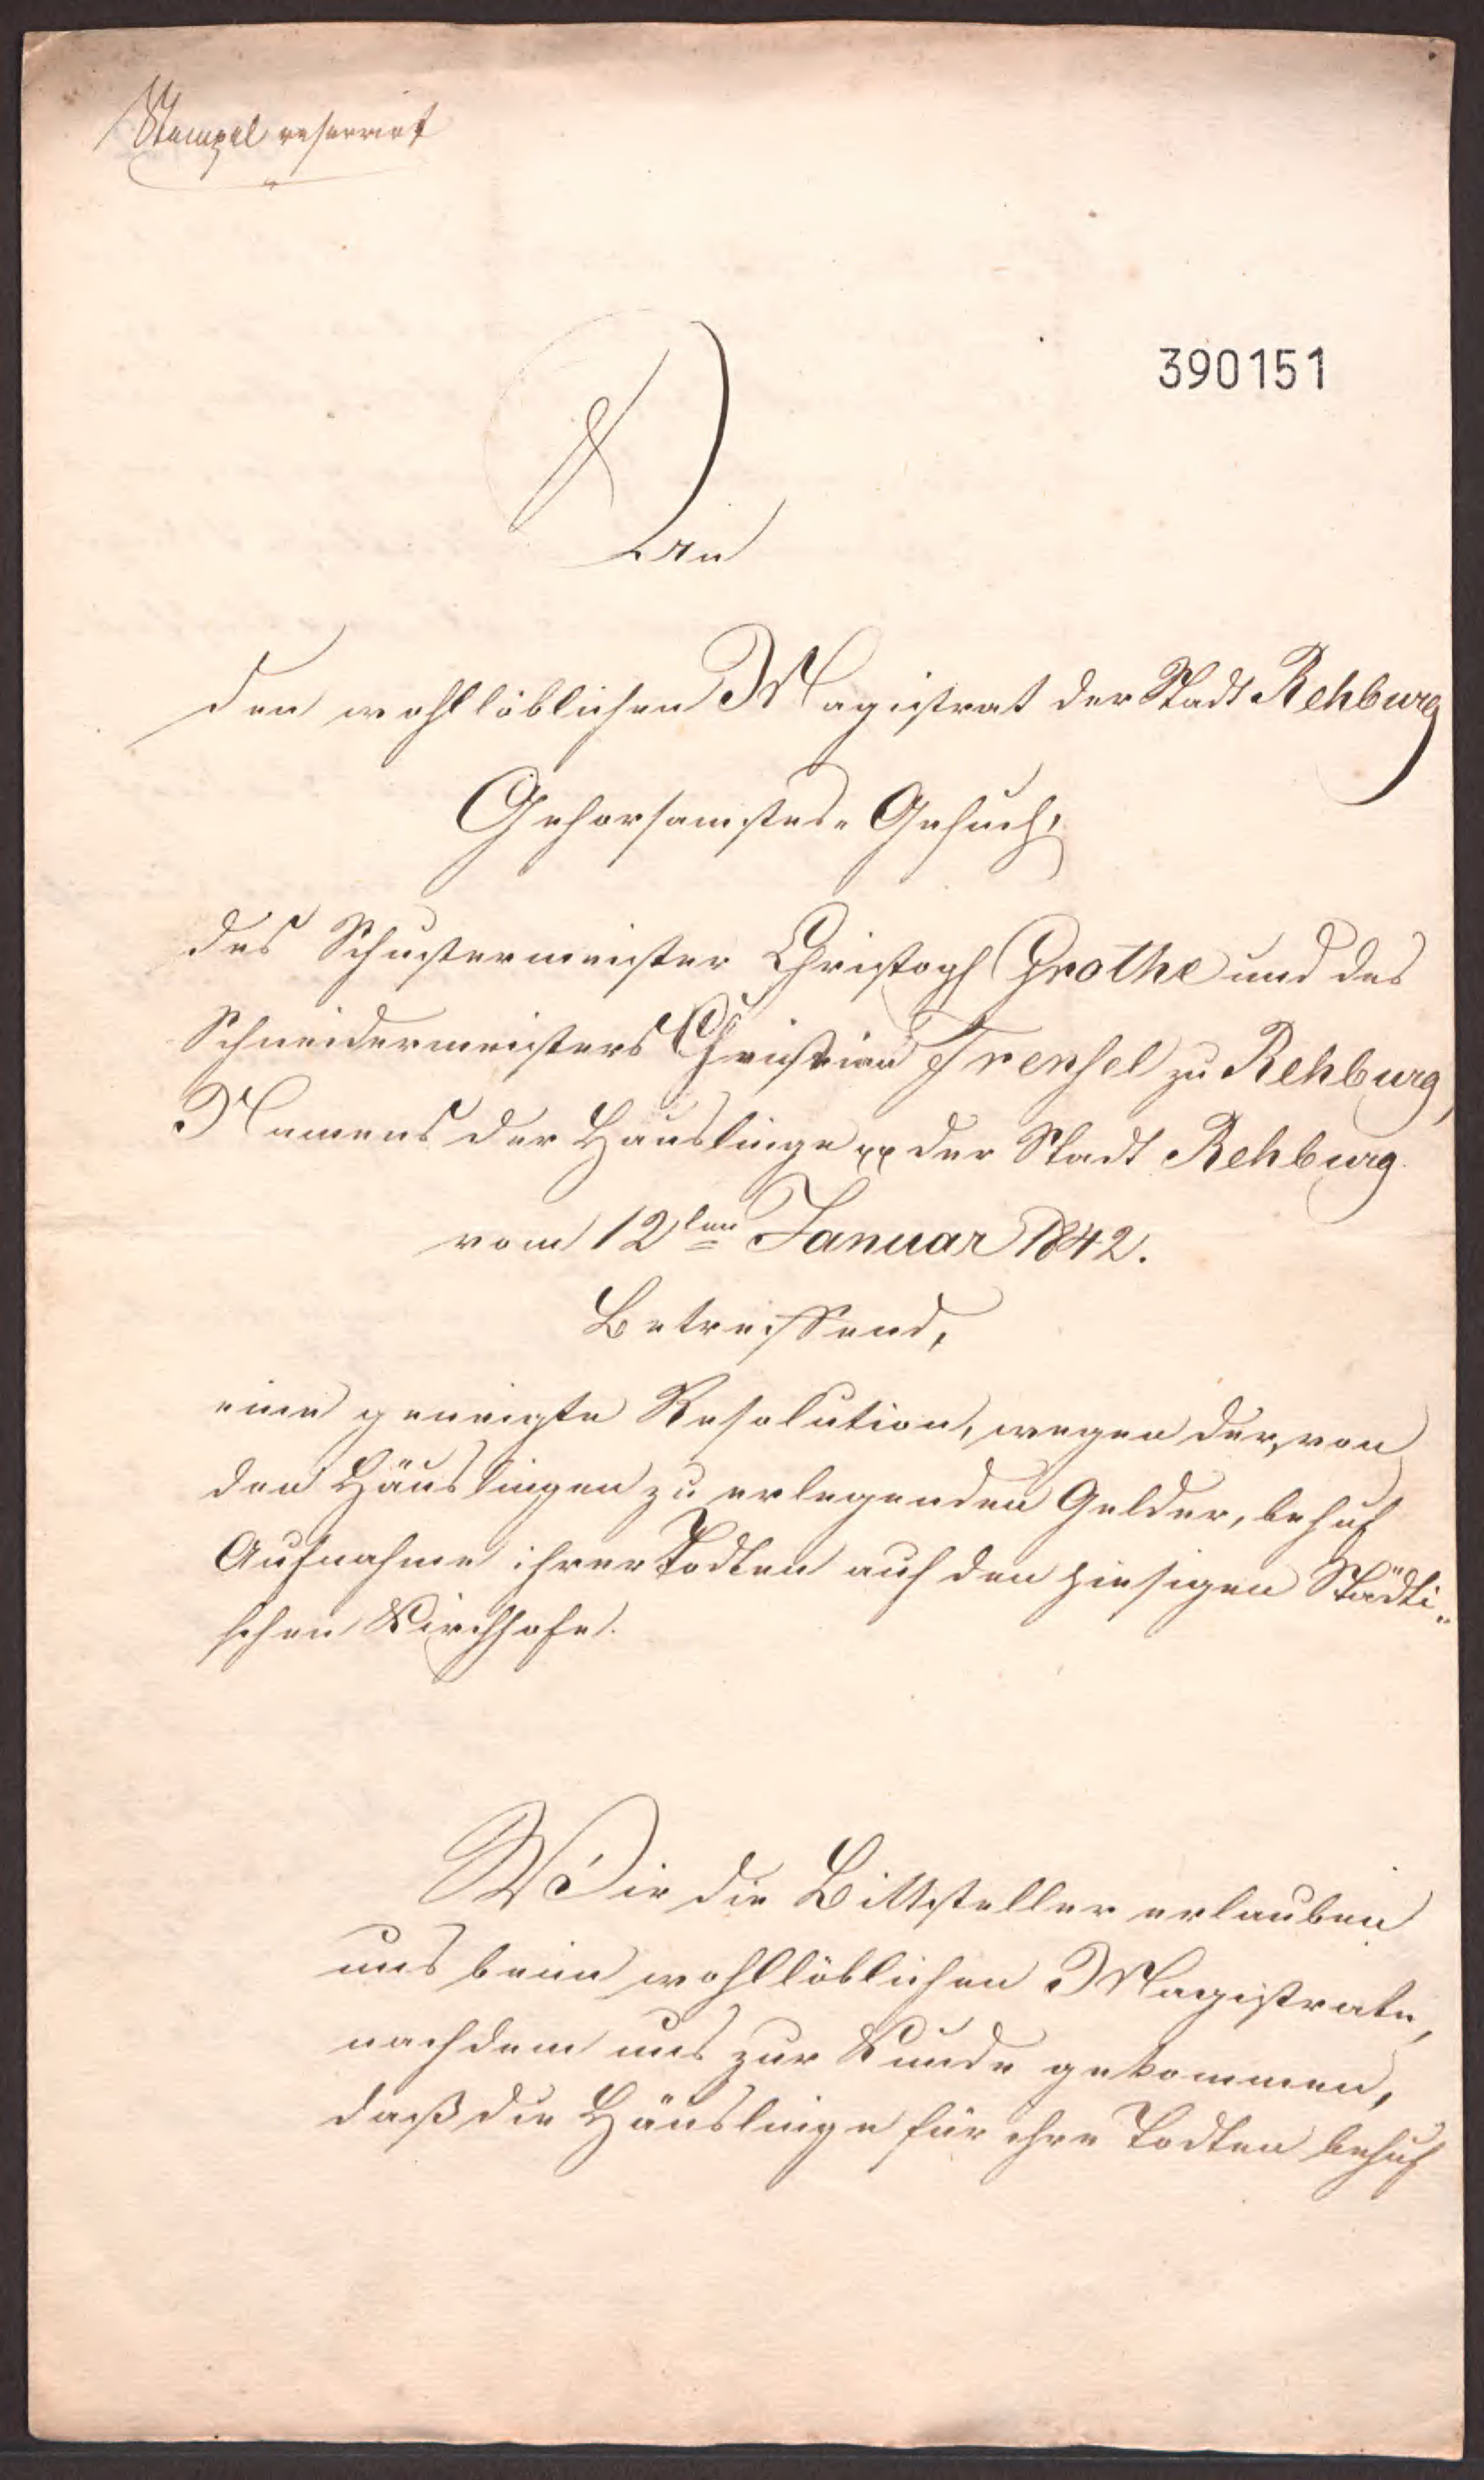 Stempel reservirt
390151
An
den wohllöblichen Magistrat der Stadt Rehburg
Gehorsamstes Gesuch,
des Schustermeister Christoph Grothe und des
Schneidermeisters Christian Frensel zu Rehburg,
Namens der Häuslinge pp der Stadt Rehburg.
vom 12ten Januar 1842.
Betreffend,
eine geneigte Resolution, wegen der, von
den Häuslingen zu erlegenden Gelder, behuf
Aufnahme ihrer Todten auf den hiesigen Städti-
schen Kirchhofe.
Wir die Bittsteller erlauben
uns beim wohllöblichen Magistrate,
nachdem uns zur Kunde gekommen,
daß die Häuslinge für ihre Todten behuf